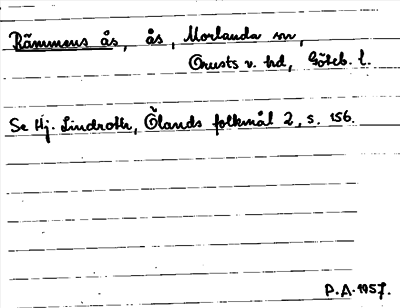 Rämmens ås, ås, Morlanda sn,
Orusts v. hd, Göteb. l.
Se Hj. Lindroth, Ölands folkmål 2, s. 156.
P.A. 1957.